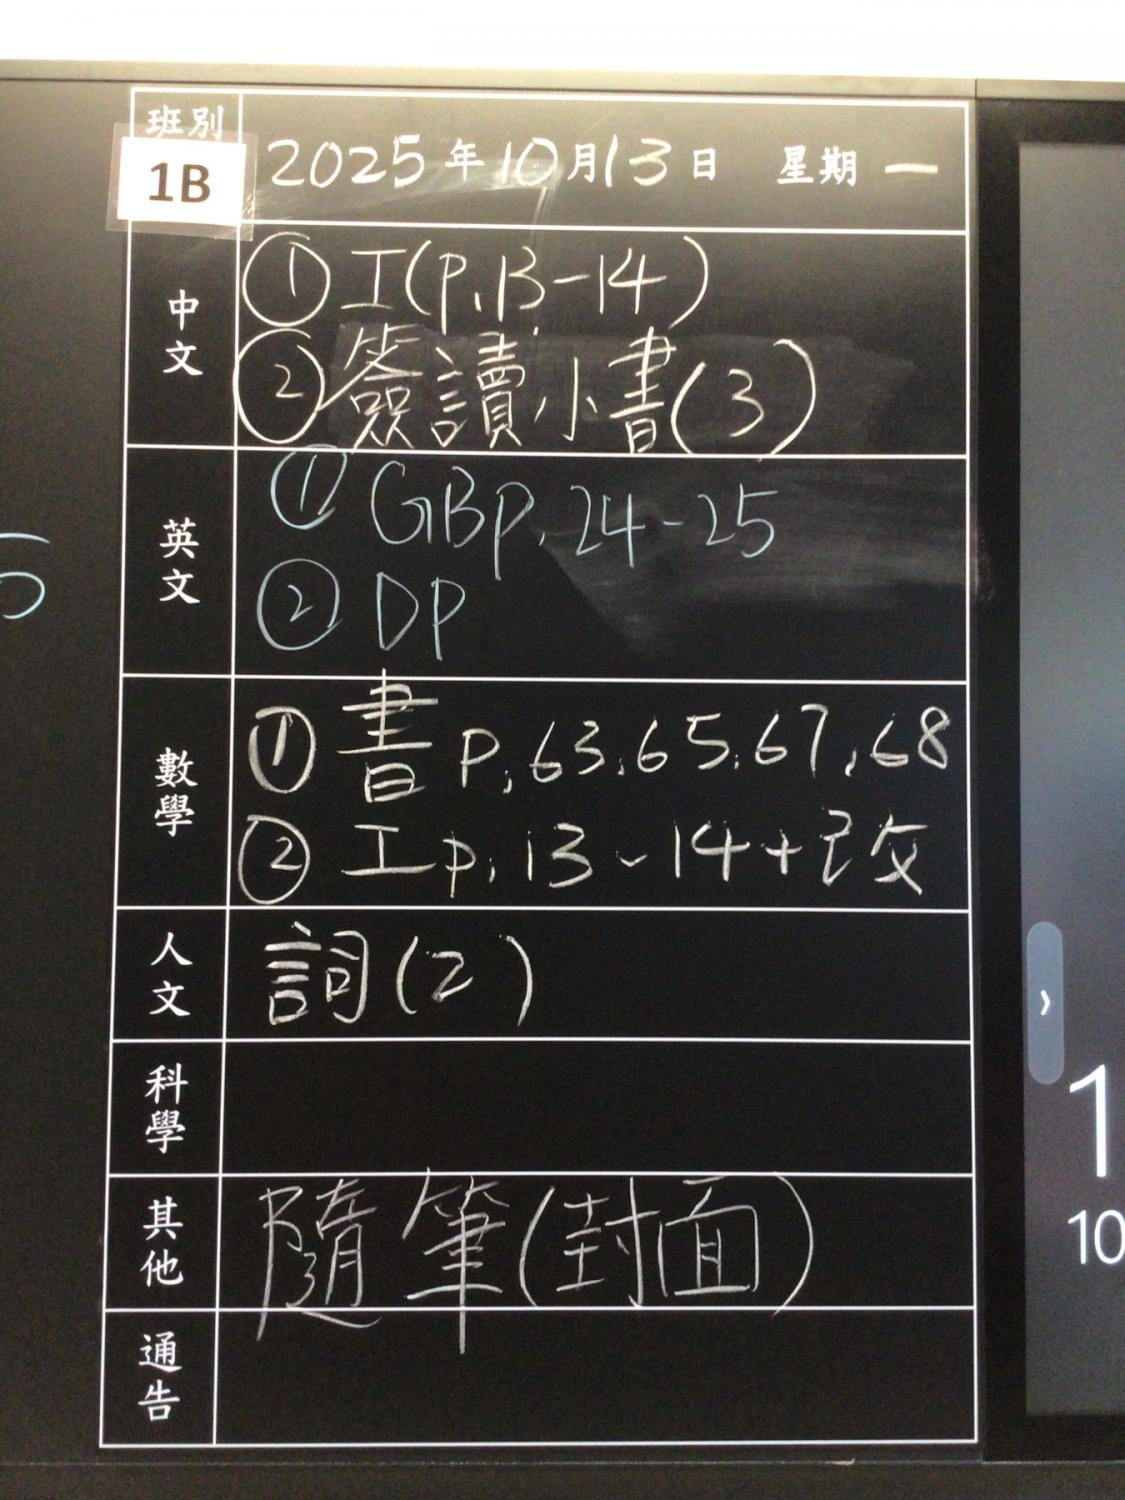 班別
1B
2025年10月13日 星期一
中文
① 工(p.13-14)
② 簽讀小書(3)
英文
① GBp.24-25
② DP
數學
① 書p.63,65,67,68
② 工p.13~14+改
人文
詞(2)
科學
其他
隨筆(封面)
通告
1
10